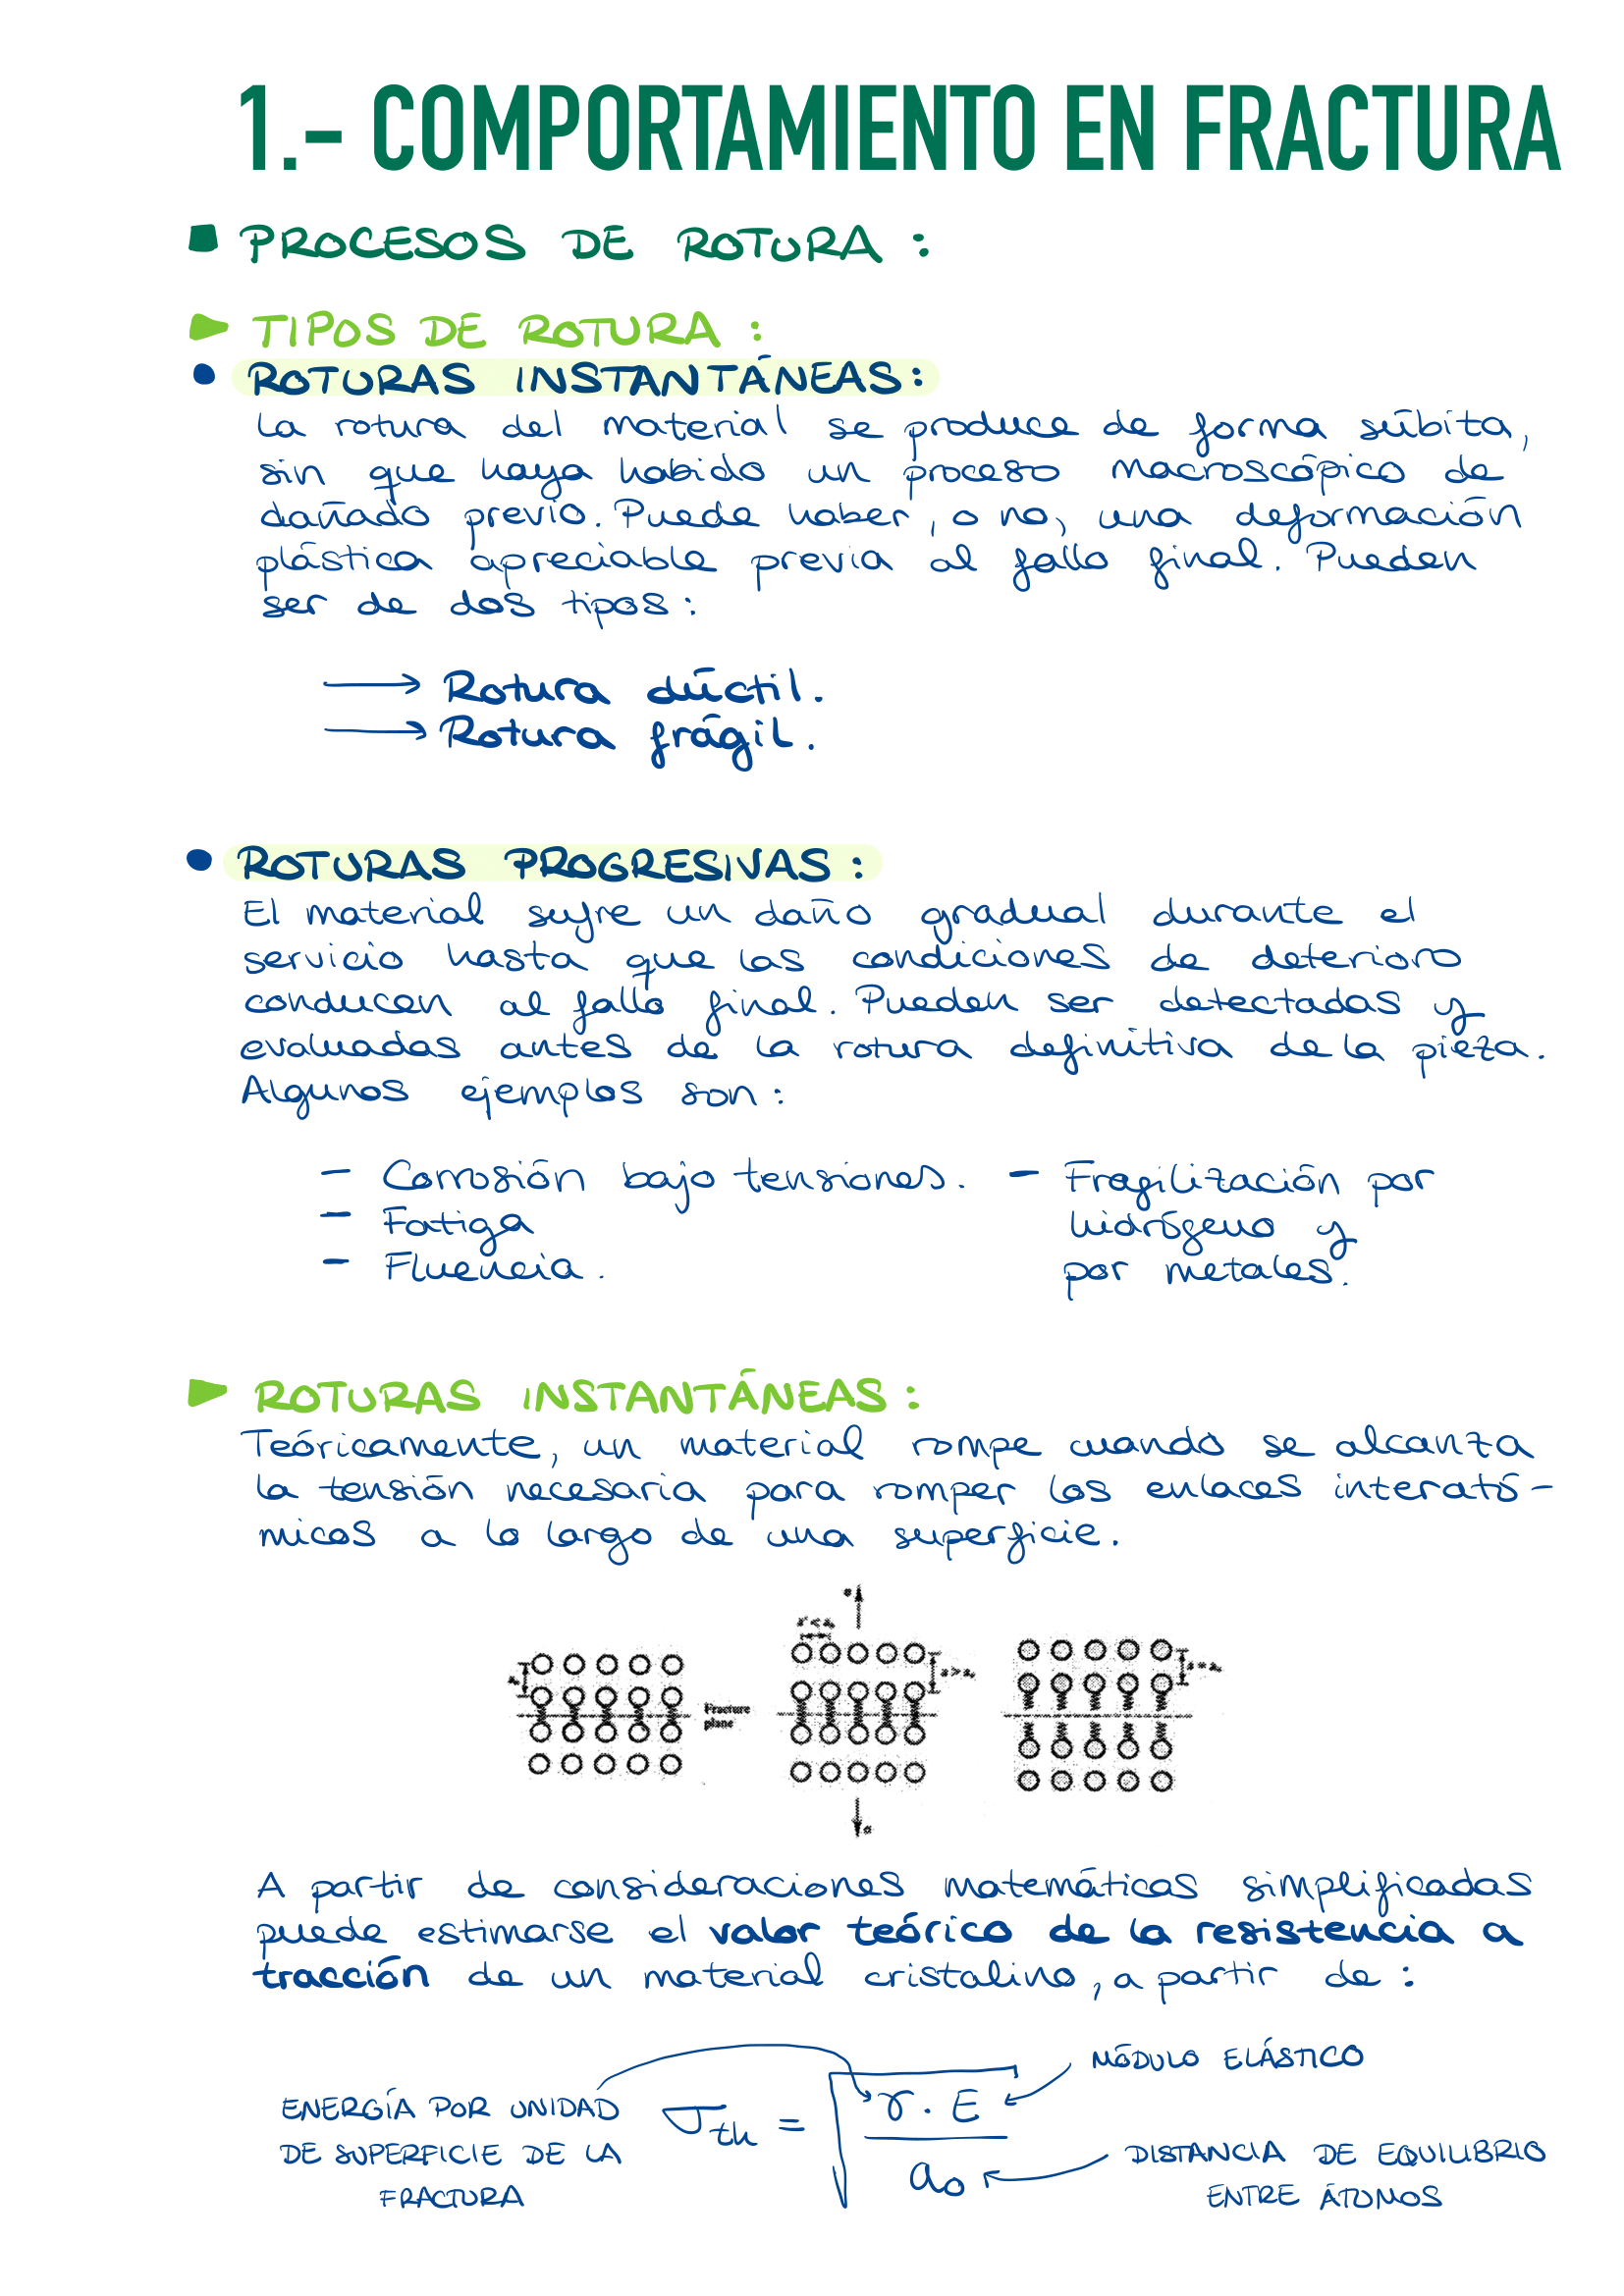 1.- COMPORTAMIENTO EN FRACTURA
PROCESOS DE ROTURA :
TIPOS DE ROTURA :
ROTURAS INSTANTÁNEAS:
La rotura del material se produce de forma súbita,
sin que haya habido un proceso macroscópico de
dañado previo. Puede haber, o no, una deformación
plástica apreciable previa al fallo final. Pueden
ser de dos tipos:
→ Rotura dúctil.
→ Rotura frágil.
ROTURAS PROGRESIVAS:
El material sufre un daño gradual durante el
servicio hasta que las condiciones de deterioro
conducen al fallo final. Pueden ser detectadas y
evaluadas antes de la rotura definitiva de la pieza.
Algunos ejemplos son:
- Corrosión bajo tensiones.
- Fatiga
- Fluencia.
- Fragilización por
hidrógeno y
por metales.
ROTURAS INSTANTÁNEAS:
Teóricamente, un material rompe cuando se alcanza
la tensión necesaria para romper los enlaces interató-
micos a lo largo de una superficie.
Fracture
plane
A partir de consideraciones matemáticas simplificadas
puede estimarse el valor teórico de la resistencia a
tracción de un material cristalino, a partir de:
MÓDULO ELÁSTICO
ENERGÍA POR UNIDAD
DE SUPERFICIE DE LA
FRACTURA
σth = √(γ · E / a₀)
DISTANCIA DE EQUILIBRIO
ENTRE ÁTOMOS